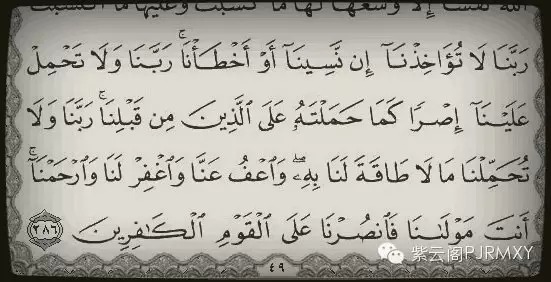 الله نفسا إلا وسعها لها ما كسبت وعليها ما اكتسبت
رَبَّنَا لَا تُؤَاخِذْنَآ إِن نَّسِينَآ أَوْ أَخْطَأْنَا ۚ رَبَّنَا وَلَا تَحْمِلْ
عَلَيْنَآ إِصْرًا كَمَا حَمَلْتَهُۥ عَلَى ٱلَّذِينَ مِن قَبْلِنَا ۚ رَبَّنَا وَلَا
تُحَمِّلْنَا مَا لَا طَاقَةَ لَنَا بِهِۦ ۖ وَٱعْفُ عَنَّا وَٱغْفِرْ لَنَا وَٱرْحَمْنَآ ۚ
أَنتَ مَوْلَىٰنَا فَٱنصُرْنَا عَلَى ٱلْقَوْمِ ٱلْكَٰفِرِينَ ٢٨٦
٤٩
紫云阁PJRMXY